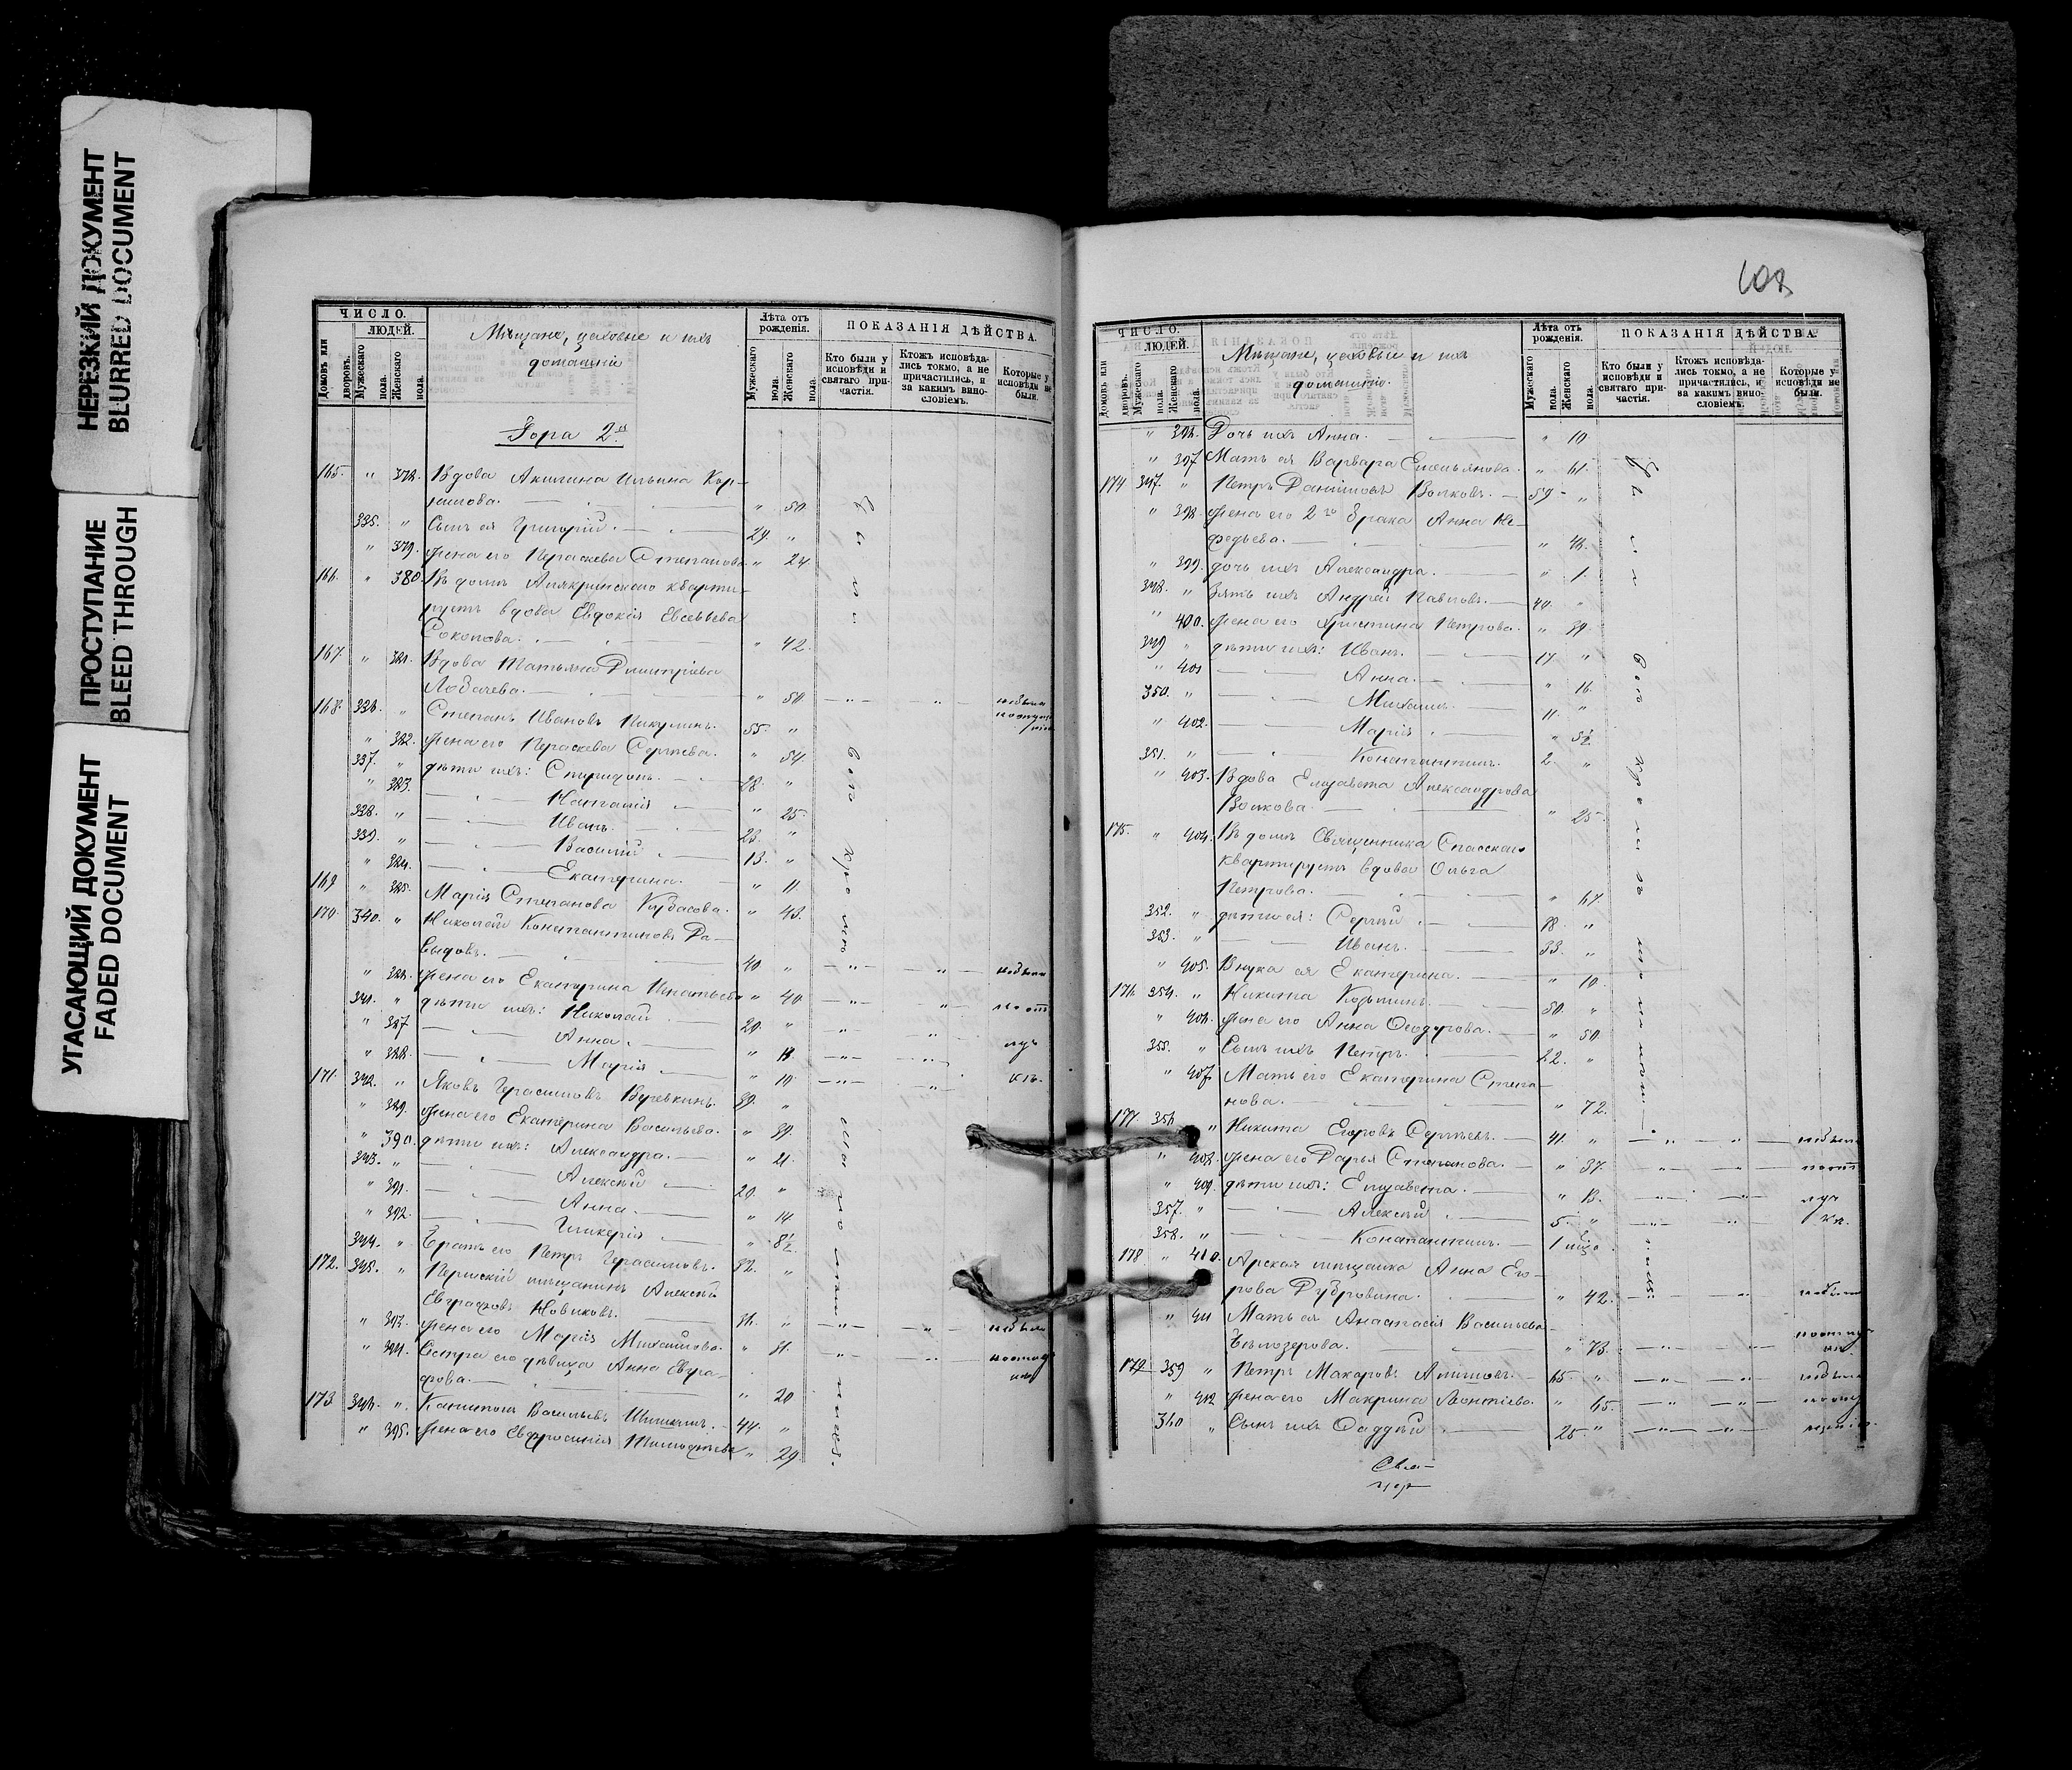 НЕРЕЗКИЙ ДОКУМЕНТ
BLURRED DOCUMENT
ПРОСТУПАНИЕ
BLEED THROUGH
УГАСАЮЩИЙ ДОКУМЕНТ
FADED DOCUMENT
ЧИСЛО.
ЛЮДЕЙ.
Домовъ или дворовъ.
Мужескаго пола.
Женскаго пола.
Мѣщане, цеховые и ихъ
домашніе
Лѣта отъ рожденія.
Мужескаго пола.
Женскаго пола.
ПОКАЗАНІЯ ДѢЙСТВА.
Кто были у исповѣди и святаго причастія.
Ктожъ исповѣдались токмо, а не причастились, и за какимъ винословіемъ.
Которые у исповѣди не были.
Гора 2.я
165. " 378. Вдова Акилина Ильина Кор-
нилова. " 50
335. " Сынъ ея Григорій. 29. "
" 379. Жена его Параскева Степанова. " 24
166. " 380. Въ домѣ квартируетъ вдова Евдокія Евсевьева
Соколова. " 42.
167 " 381. Вдова Татьяна Димитріева
Лобачева. " 50
168. 336. " Степанъ Ивановъ Никулинъ. 55. "
" 382. Жена его Параскева Сергѣева. " 54
337. " дѣти ихъ: Спиридонъ. 28. "
" 383. Наталія " 25
338. " Иванъ 23. "
339. " Василій 13. "
" 384. Екатерина. " 11.
169 " 385. Марія Степанова Кубасова. " 43.
170. 340. " Николай Константиновъ Да-
выдовъ. 40. "
" 386. Жена его Екатерина Игнатьева " 40
341. " дѣти ихъ: Николай 20. "
" 387 Анна.
" 388. Марія " 10
171. 342. " Яковъ Герасимовъ Веревкинъ. 39. "
" 389. Жена его Екатерина Васильева. " 39.
" 390. дѣти ихъ: Александра. " 21.
343. " Алексѣй 20. "
" 391. Анна. " 14
" 392. Гликерія " 8½
344. " Братъ его Петръ Герасимовъ. 32. "
172. 345. " Пермскій мѣщанинъ Алексѣй
Евграфовъ Новиковъ. 36. "
" 393. Жена его Марія Михайлова. " 31.
" 394. Сестра его дѣвица Анна Евгра-
фова. " 20
173 346. " Капитонъ Васильевъ Шишкинъ. 44. "
" 395. Жена его Евфросинія Тимофеева " 29.
ЧИСЛО.
ЛЮДЕЙ.
Домовъ или дворовъ.
Мужескаго пола.
Женскаго пола.
Мѣщане, цеховые и ихъ
домашніе.
Лѣта отъ рожденія.
Мужескаго пола.
Женскаго пола.
ПОКАЗАНІЯ ДѢЙСТВА.
Кто были у исповѣди и святаго причастія.
Ктожъ исповѣдались токмо, а не причастились, и за какимъ винословіемъ.
Которые у исповѣди не были.
" 396. Дочь ихъ Анна. " 10
" 397 Мать ея Варвара Емельянова. " 61.
174 347. " Петръ Даниловъ Волковъ. 59 "
" 398. Жена его 2го брака Анна Ме-
фодьева. " 46.
" 399. дочь ихъ Александра. " 1.
348. " Зять ихъ Андрей Павловъ. 40. "
" 400. Жена его Христина Петрова. " 39.
349 " дѣти ихъ: Иванъ. 17 "
" 401 Анна. " 16.
350. " Михаилъ. 11. "
" 402. Марія " 5½
351. " Константинъ. 2. "
" 403. Вдова Елизавета Александрова
Волкова. " 25
175. " 404. Въ домѣ Священника Спасскаго
квартируетъ вдова Ольга
Петрова. " 67.
352. " дѣти ея: Сергѣй
353. " Иванъ. 33. "
" 405. Внука ея Екатерина. " 10.
176. 354. " Никита Козьминъ. 50. "
" 406. Жена его Анна Ѳеодорова. " 50.
355. " Сынъ ихъ Петръ. 22. "
" 407. Мать его Екатерина Степа-
нова. " 72.
177. 356. " Никита Егоровъ Сергѣевъ. 41. "
" 408. Жена его Дарья Степанова. " 37.
" 409. дѣти ихъ: Елизавета. " 13.
357. " Алексѣй 5. "
358. " Константинъ.
178 " 410. Арская мѣщанка Анна Его-
рова Дубровина. " 42.
" 411 Мать ея Анастасія Васильева
Бѣлозерова. " 73.
179 359 " Петръ Макаровъ 65 "
" 412 Жена его Макрина Леонтіева. " 65.
360 " Сынъ ихъ Ѳаддей 25 "